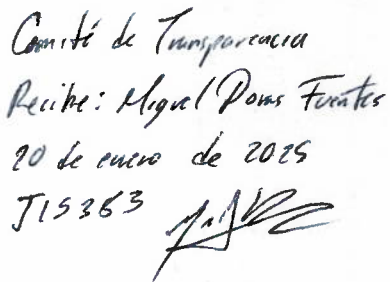 Comité de Transparencia
Recibe: Miguel Fuentes
20 de enero de 2025
J15383